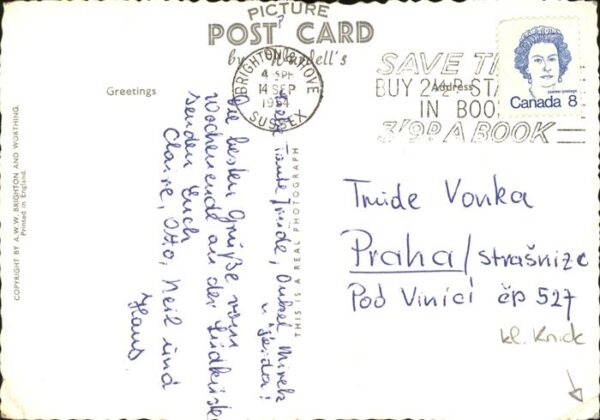 PICTURE
POST CARD
by Wardell's
Greetings
Address
BRIGHTON & HOVE
4 30 PM
14 SEP
1954
SUSSEX
SAVE
BUY 2½D STA
IN BOO
3/9D A BOOK
Canada 8
COPYRIGHT BY A.W.W. BRIGHTON AND WORTHING.
Printed in England.
THIS IS A REAL PHOTOGRAPH
Tante Trude, Onkel Mirek
u
Die besten Grüße vom
Wochenende an der Südküste
senden Euch
Claire, Otto, Neil und
Hans.
Trude Vonka
Praha/strašnice
Pod Vinicí čp 527
kl. Knick